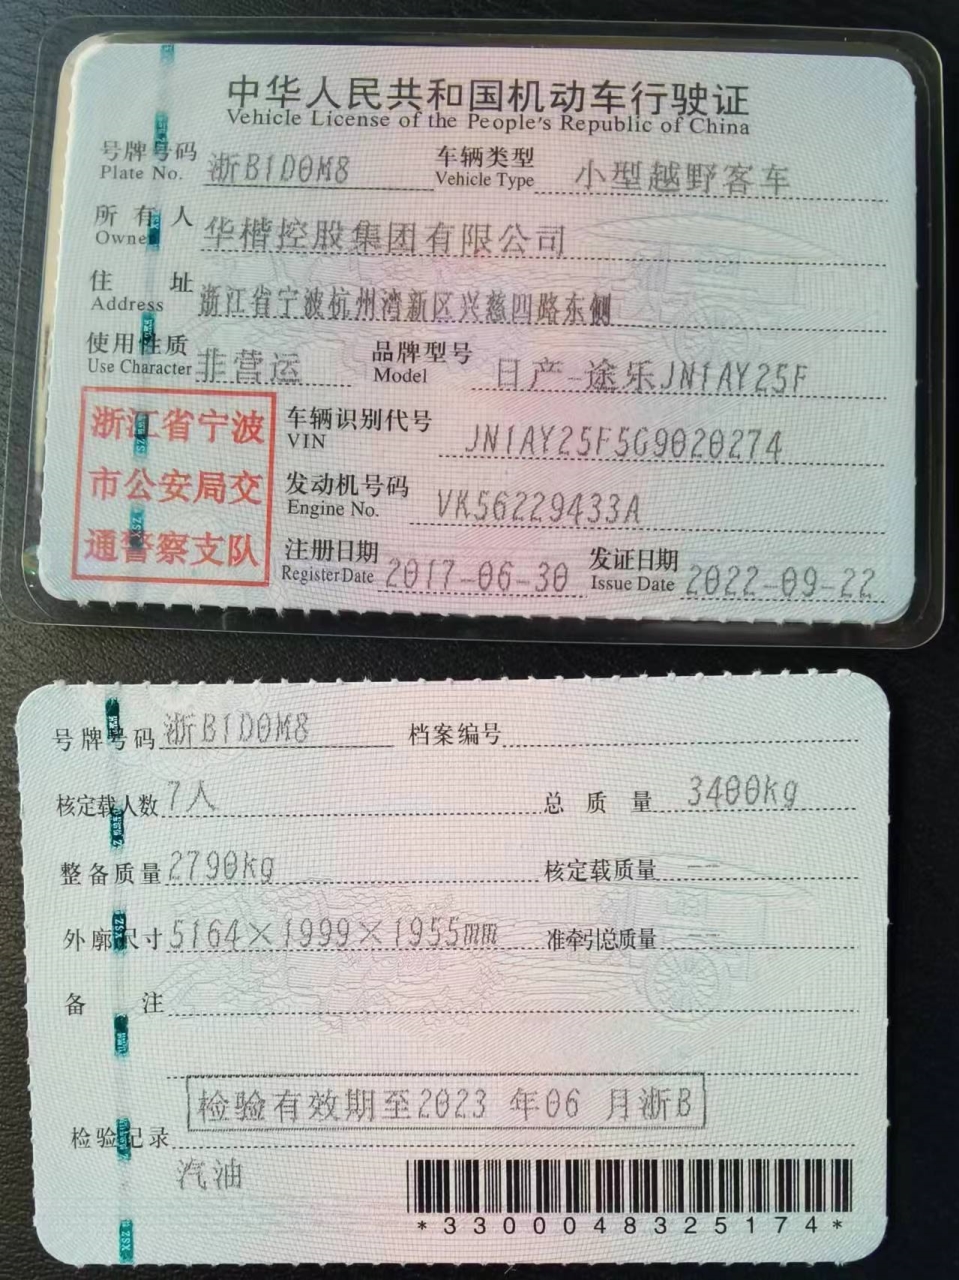 中华人民共和国机动车行驶证
Vehicle License of the People's Republic of China
号牌号码 浙B1D0M8 车辆类型 小型越野客车
Plate No. Vehicle Type
所有人 华楷控股集团有限公司
Owner
住址 浙江省宁波杭州湾新区兴慈四路东侧
Address
使用性质 非营运 品牌型号 日产-途乐JN1AY25F
Use Character Model
浙江省宁波
市公安局交
通警察支队
车辆识别代号 JN1AY25F5G9020274
VIN
发动机号码 VK56229433A
Engine No.
注册日期 2017-06-30 发证日期 2022-09-22
Register Date Issue Date
号牌号码 浙B1D0M8 档案编号
核定载人数 7人 总质量 3400kg
整备质量 2790kg 核定载质量 --
外廓尺寸 5164×1999×1955mm 准牵引总质量 --
备注
检验有效期至2023年06月浙B
检验记录
汽油
*3300048325174*